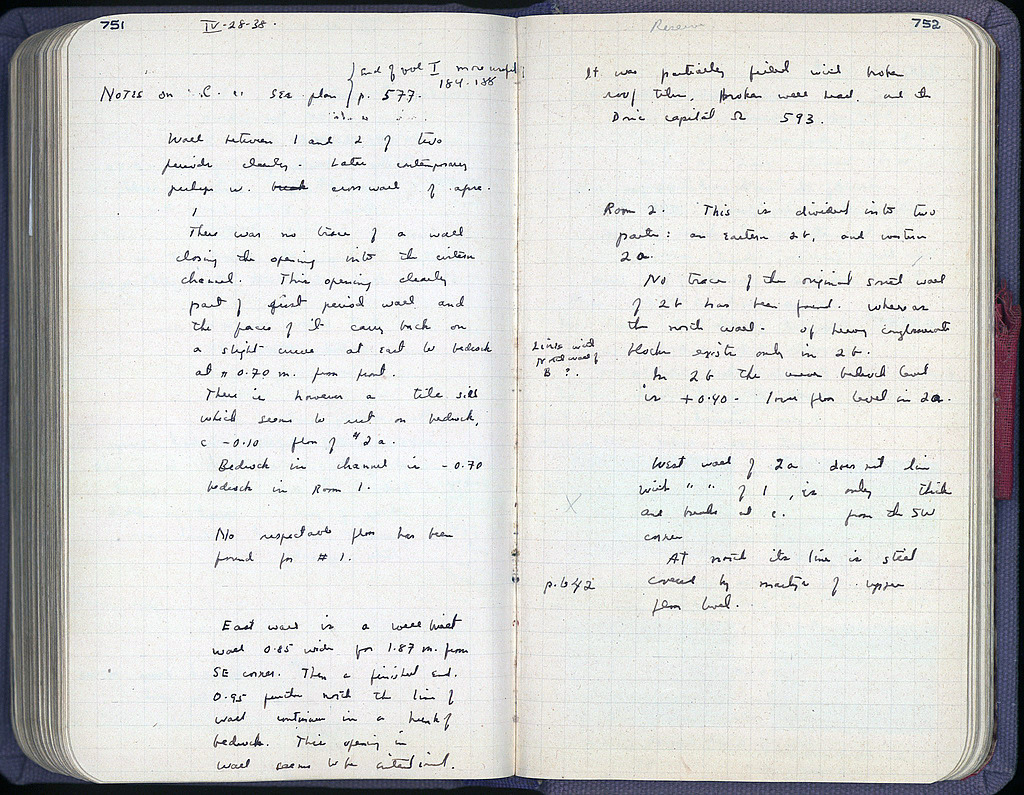 751
IV-28-38.
End of vol I more useful
184-188
Notes on C. see plan p. 577.
Wall between 1 and 2 of two
periods clearly. Later contemporary
perhaps w. break cross wall of apse.
1
There was no trace of a wall
closing the opening into the cistern
channel. This opening clearly
part of first period wall and
the faces of it carry back on
a slight curve at East to bedrock
at 0.70 m. from front.
There is however a tile sill
which seems to rest on bedrock,
c -0.10 floor of 2a.
Bedrock in channel is -0.70
bedrock in Room 1.
No respectable floor has been
found for # 1.
East wall is a well built
wall 0.85 wide for 1.87 m. from
SE corner. Then a finished end.
0.95 further north the line of
wall continues in a hunk of
bedrock. This opening in
wall seems to be intentional.
752
Reserve
It was partially filled with broken
roof tiles, broken well head, and the
Doric capital Ω 593.
Room 2. This is divided into two
parts: an Eastern 2b, and western
2a.
No trace of the original south wall
of 2b has been found. whereas
the north wall - of heavy conglomerate
blocks exists only in 2b.
Links with
North wall of
B ?.
In 2b the uneven bedrock level
is +0.40 - lower floor level in 2a.
West wall of 2a does not line
with " " of 1, is only thick
and breaks at c. from the SW
corner
X
At north its line is still
covered by of upper
floor level.
p. 642